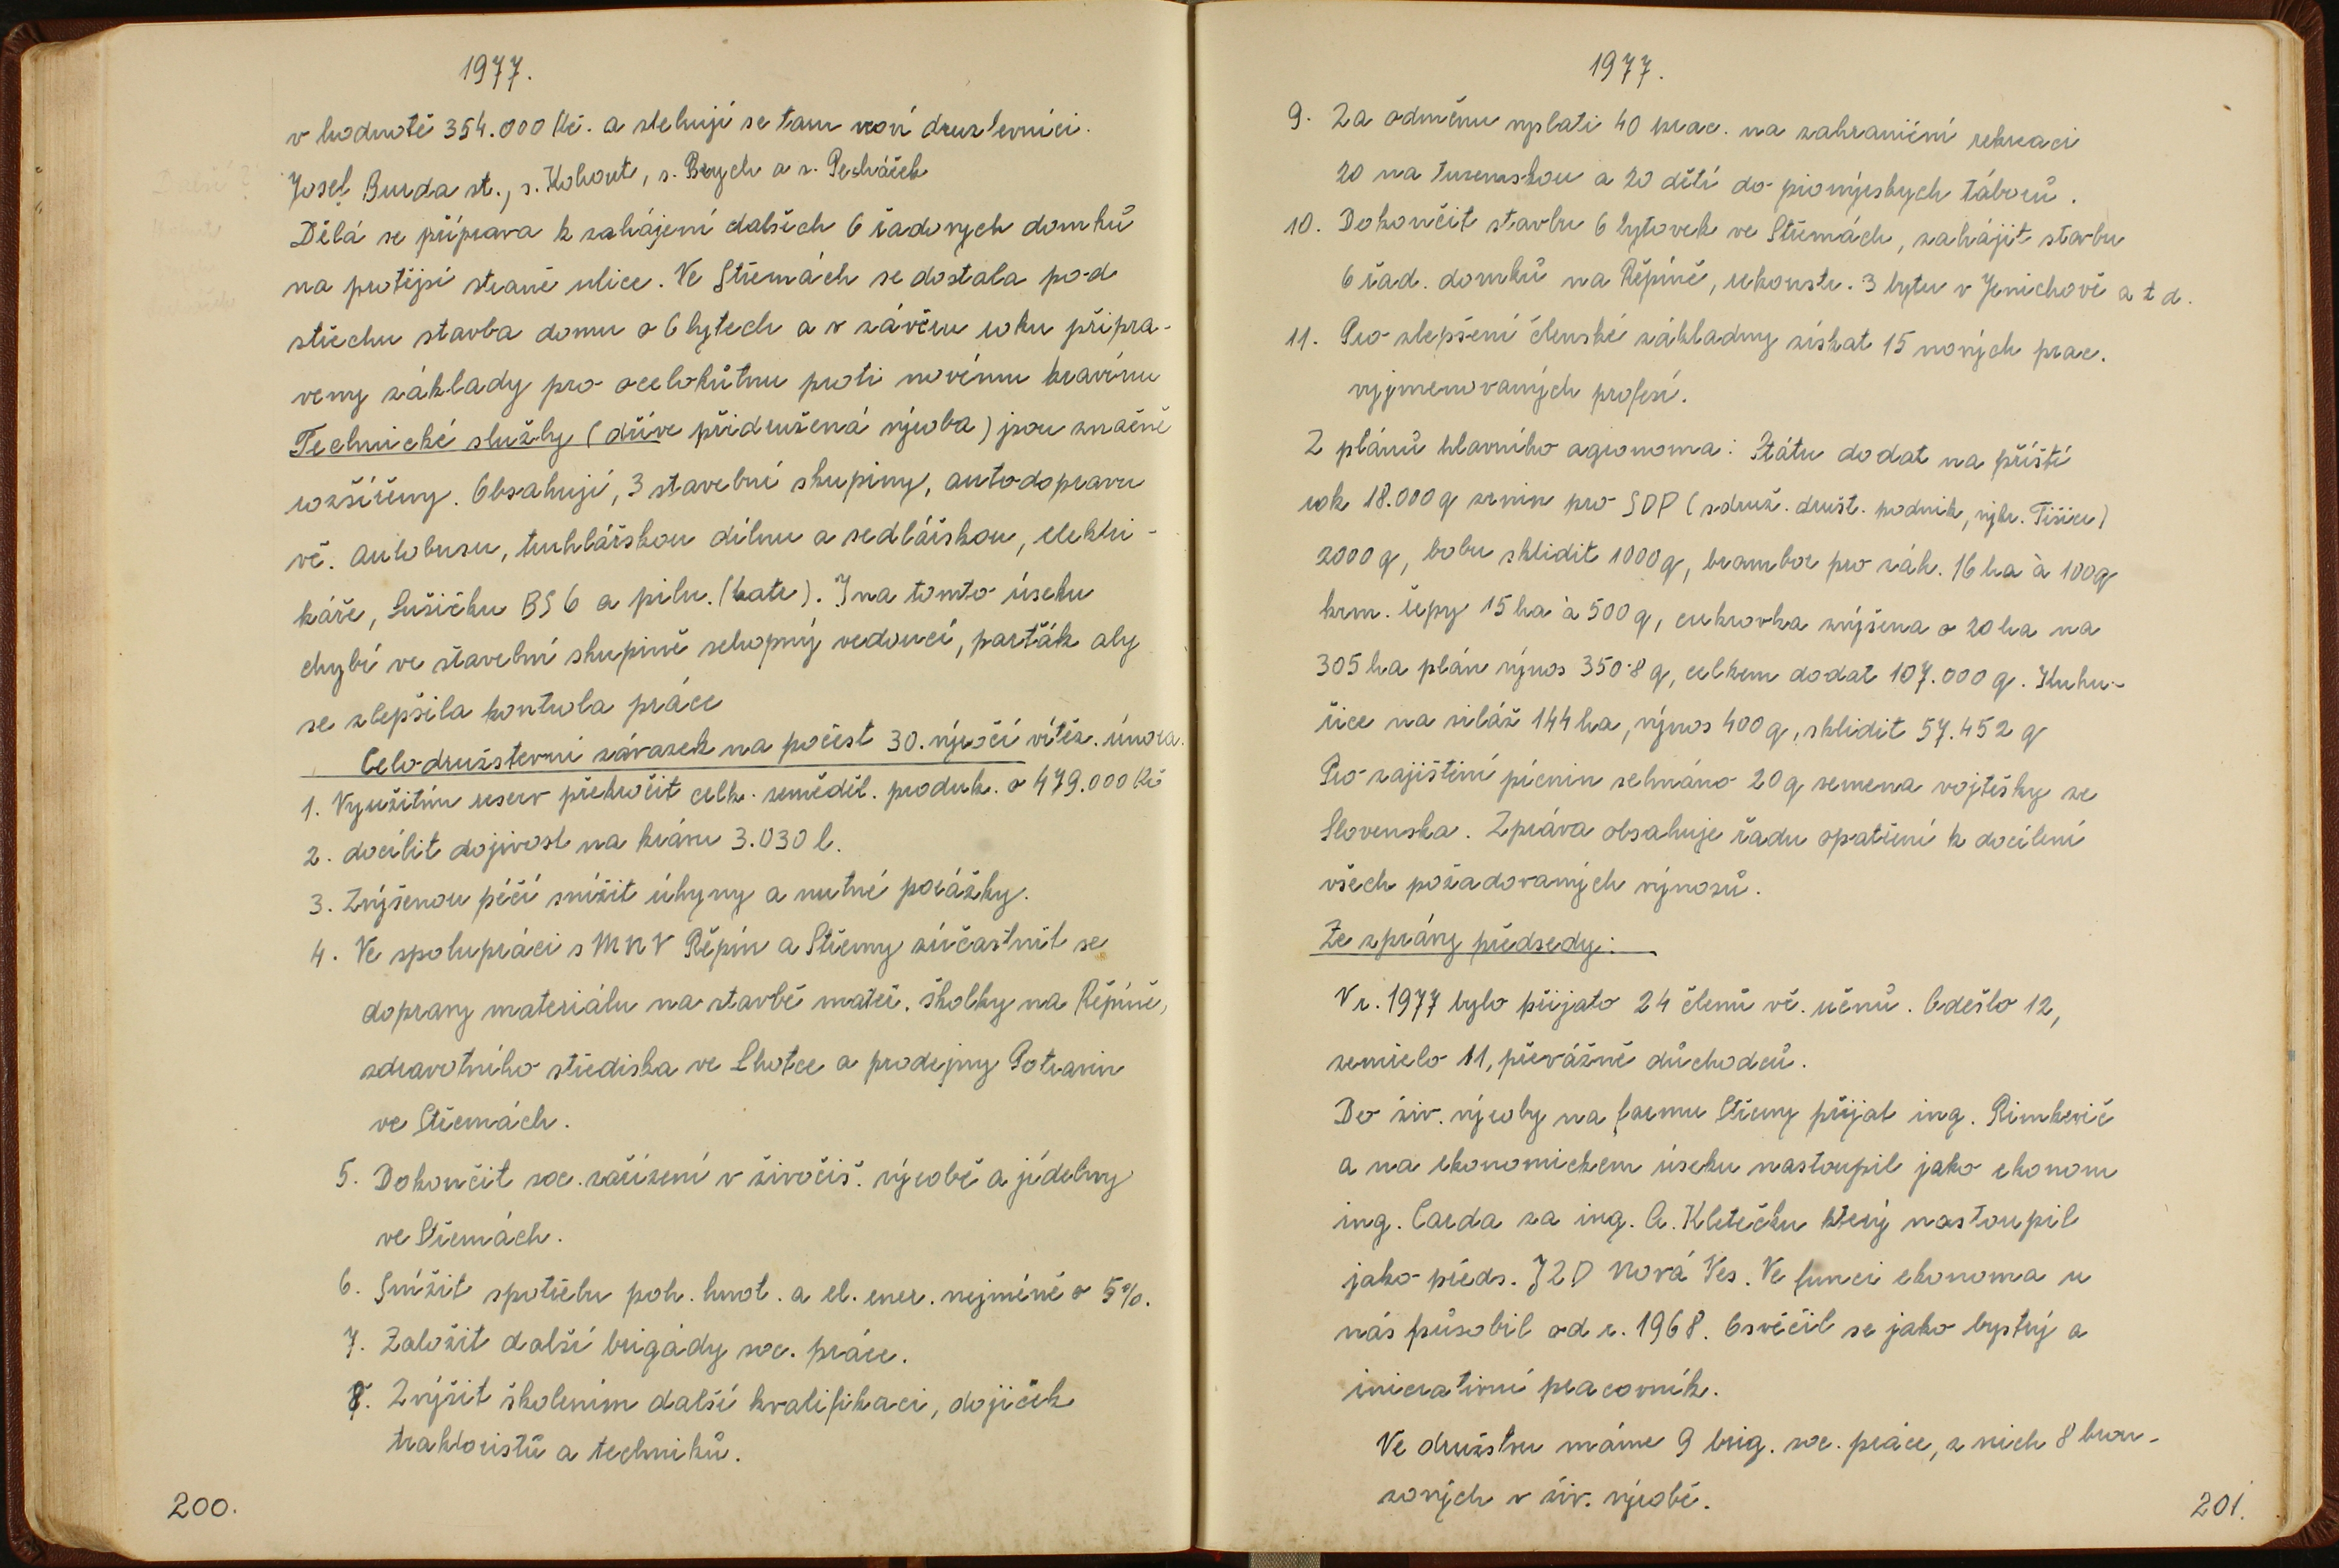 1977.
v hodnotě 354.000 Kč. a stehují se tam noví družstevníci.
Josef Burda st., s. Kohout, s. Brych a s. Pecháček
Dělá se příprava k zahájení dalších 6 řadových domků
na protější straně ulice. Ve Střemách se dostala pod
střechu stavba domu o 6 bytech a v závěru roku připra-
veny základy pro ocelokůtnu proti novému kravínu
Technické služby (dříve přidružená výroba) jsou značně
rozšířeny. Obsahují, 3 stavební skupiny, autodopravu
vč. autobusu, truhlářskou dílnu a sedlářskou, elektri-
káře, Sušičku BS 6 a pilu. (katr). I na tomto úseku
chybí ve stavební skupině schopný vedoucí, parťák aby
se zlepšila kontrola práce
Celodružstevní závazek na počest 30. výročí vítěz. února.
1. Využitím reserv překročit celk. zeměděl. produk. o 479.000 Kčs
2. docílit dojivost na krávu 3.030 l.
3. Zvýšenou péčí snížit úhyny a nutné porážky.
4. Ve spolupráci s MNV Řepín a Střemy zúčastnit se
dopravy materiálu na stavbě mateř. školky na Řepíně,
zdravotního střediska ve Lhotce a prodejny Potravin
ve Střemách.
5. Dokončit soc. zařízení v živočiš. výrobě a jídelny
ve Střemách.
6. Snížit spotřebu poh. hmot. a el. ener. nejméně o 5%.
7. Založit další brigády soc. práce.
8. Zvýšit školením další kvalifikaci, dojiček
traktoristů a techniků.
200.
1977.
9. Za odměnu vyslati 40 prac. na zahraniční rekreaci
20 na tuzemskou a 20 dětí do pionýrských táborů.
10. Dokončit stavbu 6 bytovek ve Střemách, zahájit stavbu
6 řad. domků na Řepíně, rekonstr. 3 bytu v Jenichově a t d.
11. Pro zlepšení členské základny získat 15 nových prac.
vyjmenovaných profesí.
Z plánů hlavního agronoma: Státu dodat na příští
rok 18.000 q zrnin pro SDP (sdruž. družt. podnik, výkr. Tišice)
2000 q, bobu sklidit 1000 q, brambor pro zák. 16 ha à 100 q
krm. řepy 15 ha à 500 q, cukrovka zvýšena o 20 ha na
305 ha plán výnos 350·8 q, celkem dodat 107.000 q. Kuku-
řice na siláž 144 ha, výnos 400 q, sklidit 57.452 q
Pro zajištění pícnin sehnáno 20 q semena vojtěšky ze
Slovenska. Zpráva obsahuje řadu opatření k docílení
všech požadovaných výnosů.
Ze zprávy předsedy:
V r. 1977 bylo přijato 24 členů vč. učňů. Odešlo 12,
zemřelo 11, převážně důchodců.
Do živ. výroby na farmu Střemy přijat ing. Rimkevič
a na ekonomickem úseku nastoupil jako ekonom
ing. Carda za ing. A. Kletečku který nastoupil
jako předs. JZD Nová Ves. Ve funci ekonoma u
nás působil od r. 1968. Osvěčil se jako bystrý a
iniciativní pracovník.
Ve družstvu máme 9 brig. soc. práce, z nich 8 bron-
zových v živ. výrobě.
201.